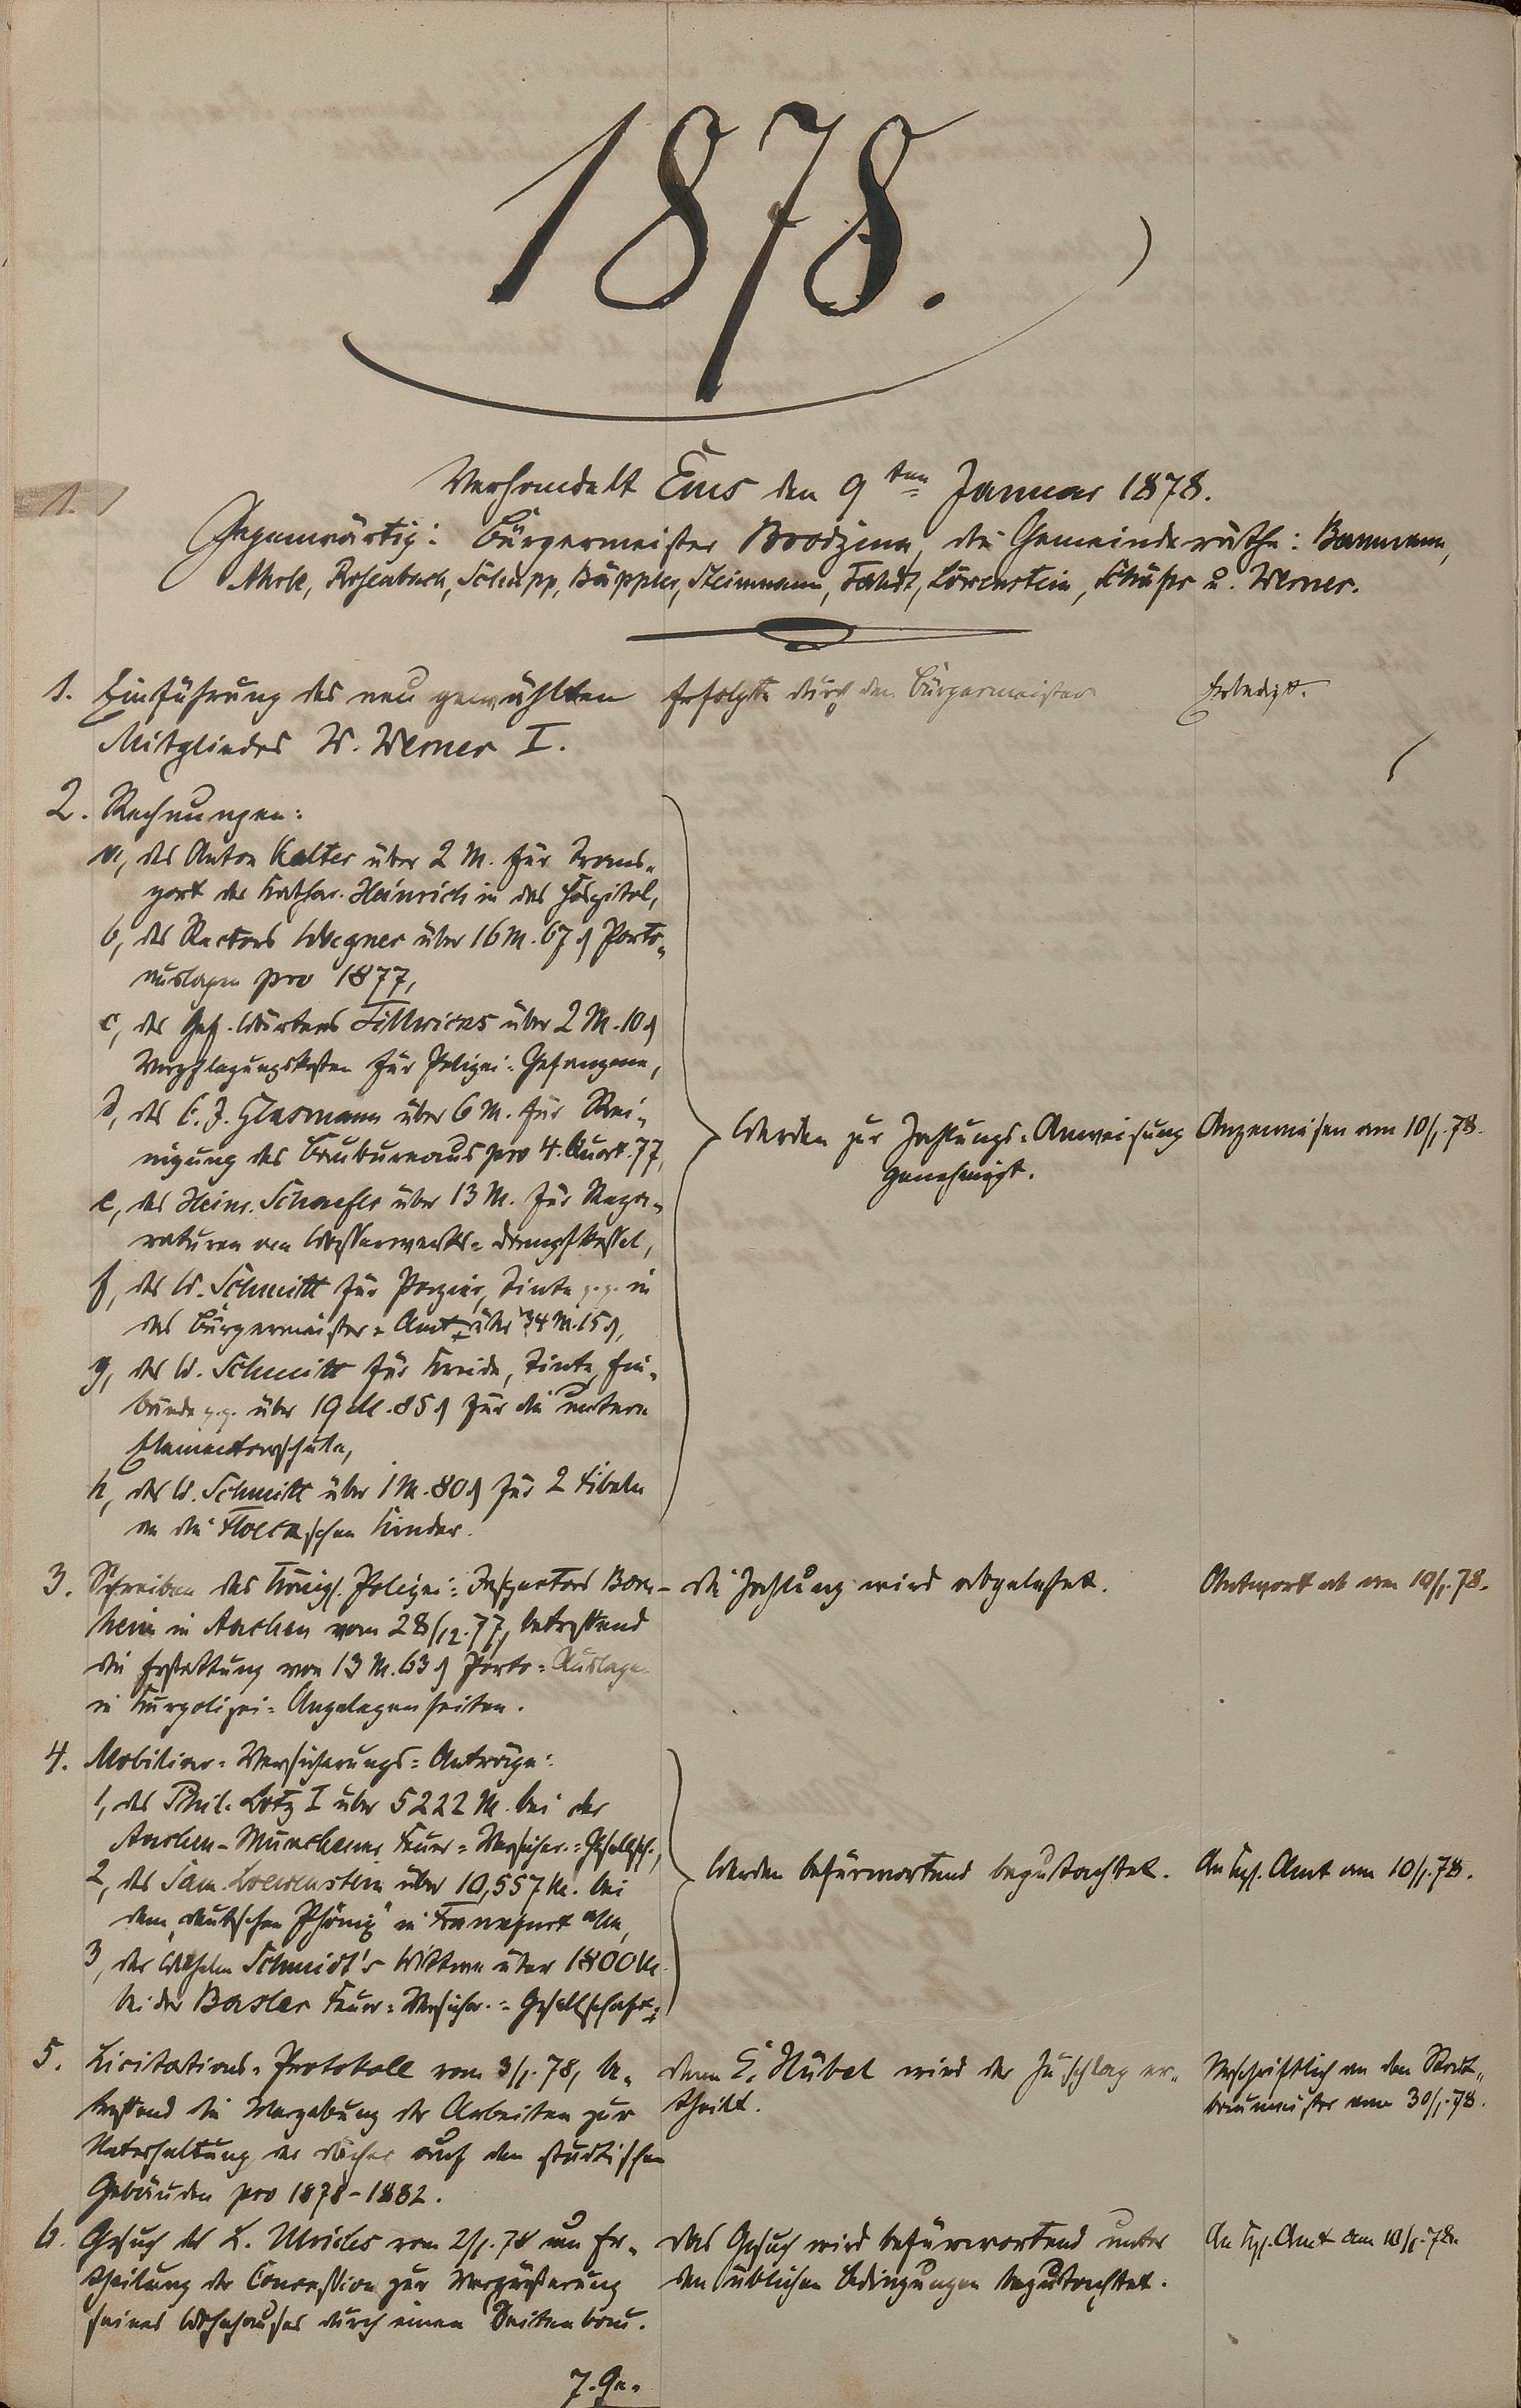 1878.
Verhandelt Ems den 9ten Januar 1878.
1.
Gegenwärtig: Bürgermeister Brodzina, die Gemeinderäthe: Baumann,
Rosenbach, Schupp, Bäppler, Steinmann, Löwenstein, u. Werner.
1. Einführung des neu gewählten
Mitgliedes W. Werner I.
erfolgte durch den Bürgermeister
Erledigt.
2. Rechnungen:
a, des Anton Kalter über 2 M. für Trans-
port der Kathar. Heinrich in das Hospital,
b, des Rectors Wegner über 16 M. 67 ₰ Porto-
auslagen pro 1877,
c, des Gef. Wärters über 2 M. 10 ₰
Verpflegungskosten für Polizei-Gefangene,
d, des C. J. Glasmann über 6 M. für Rei-
nigung des Baubureaus pro 4. Quart. 77,
e, des Heinr. Schaefer über 13 M. für Repa-
raturen am Wasserwerks-Dampfkessel,
f, des W. Schmitt für Papier, Tinte p.p. in
das Bürgermeister-Amt über 34 M. 15 ₰,
g, des W. Schmitt für Kreide, Tinte, Ein-
bände p.p. über 19 M. 85 ₰ für die untere
Elementarschule,
h, des W. Schmitt über 1 M. 80 ₰ für 2 Fibeln
an die Kinder.
Werden zur Zahlungs-Anweisung
genehmigt.
Angewiesen am 10/1. 78.
3. Schreiben des Königl. Polizei-Inspectors Born-
heim in Aachen vom 28/12. 77, betreffend
die Erstattung von 13 M. 63 ₰ Porto-Auslagen
in Kurpolizei-Angelegenheiten.
Die Zahlung wird abgelehnt.
Antwort ab am 10/1. 78.
4. Mobiliar-Versicherungs-Anträge:
1, des Phil. Lotz I über 5222 M. bei der
Aachen-Münchener Feuer-Versicher.-Gesellsch.,
2, des Sam. Loewenstein über 10,557 M. bei
dem „deutschen Phönix" in Frankfurt a/M,
3, der Wilhelm Schmidt's Wittwe über 1800 M.
bei der Basler Feuer-Versicher.-Gesellschaft.
Werden befürwortend begutachtet.
An Kgl. Amt am 10/1. 78.
5. Licitations-Protokoll vom 3/1. 78, be-
treffend die Vergebung der Arbeiten zur
Unterhaltung der Dächer auf den städtischen
Gebäuden pro 1878-1882.
Dem E. Hübel wird der Zuschlag er-
theilt.
Urschriftlich an den Stadt-
baumeister am 30/1. 78.
6. Gesuch des L. Ulrichs vom 2/1. 78 um Er-
theilung der Concession zur Vergrößerung
seines Wohnhauses durch einen Seitenbau.
Das Gesuch wird befürwortend unter
den üblichen Bedingungen begutachtet.
An Kgl. Amt am 10/1. 78.
7. Ge-